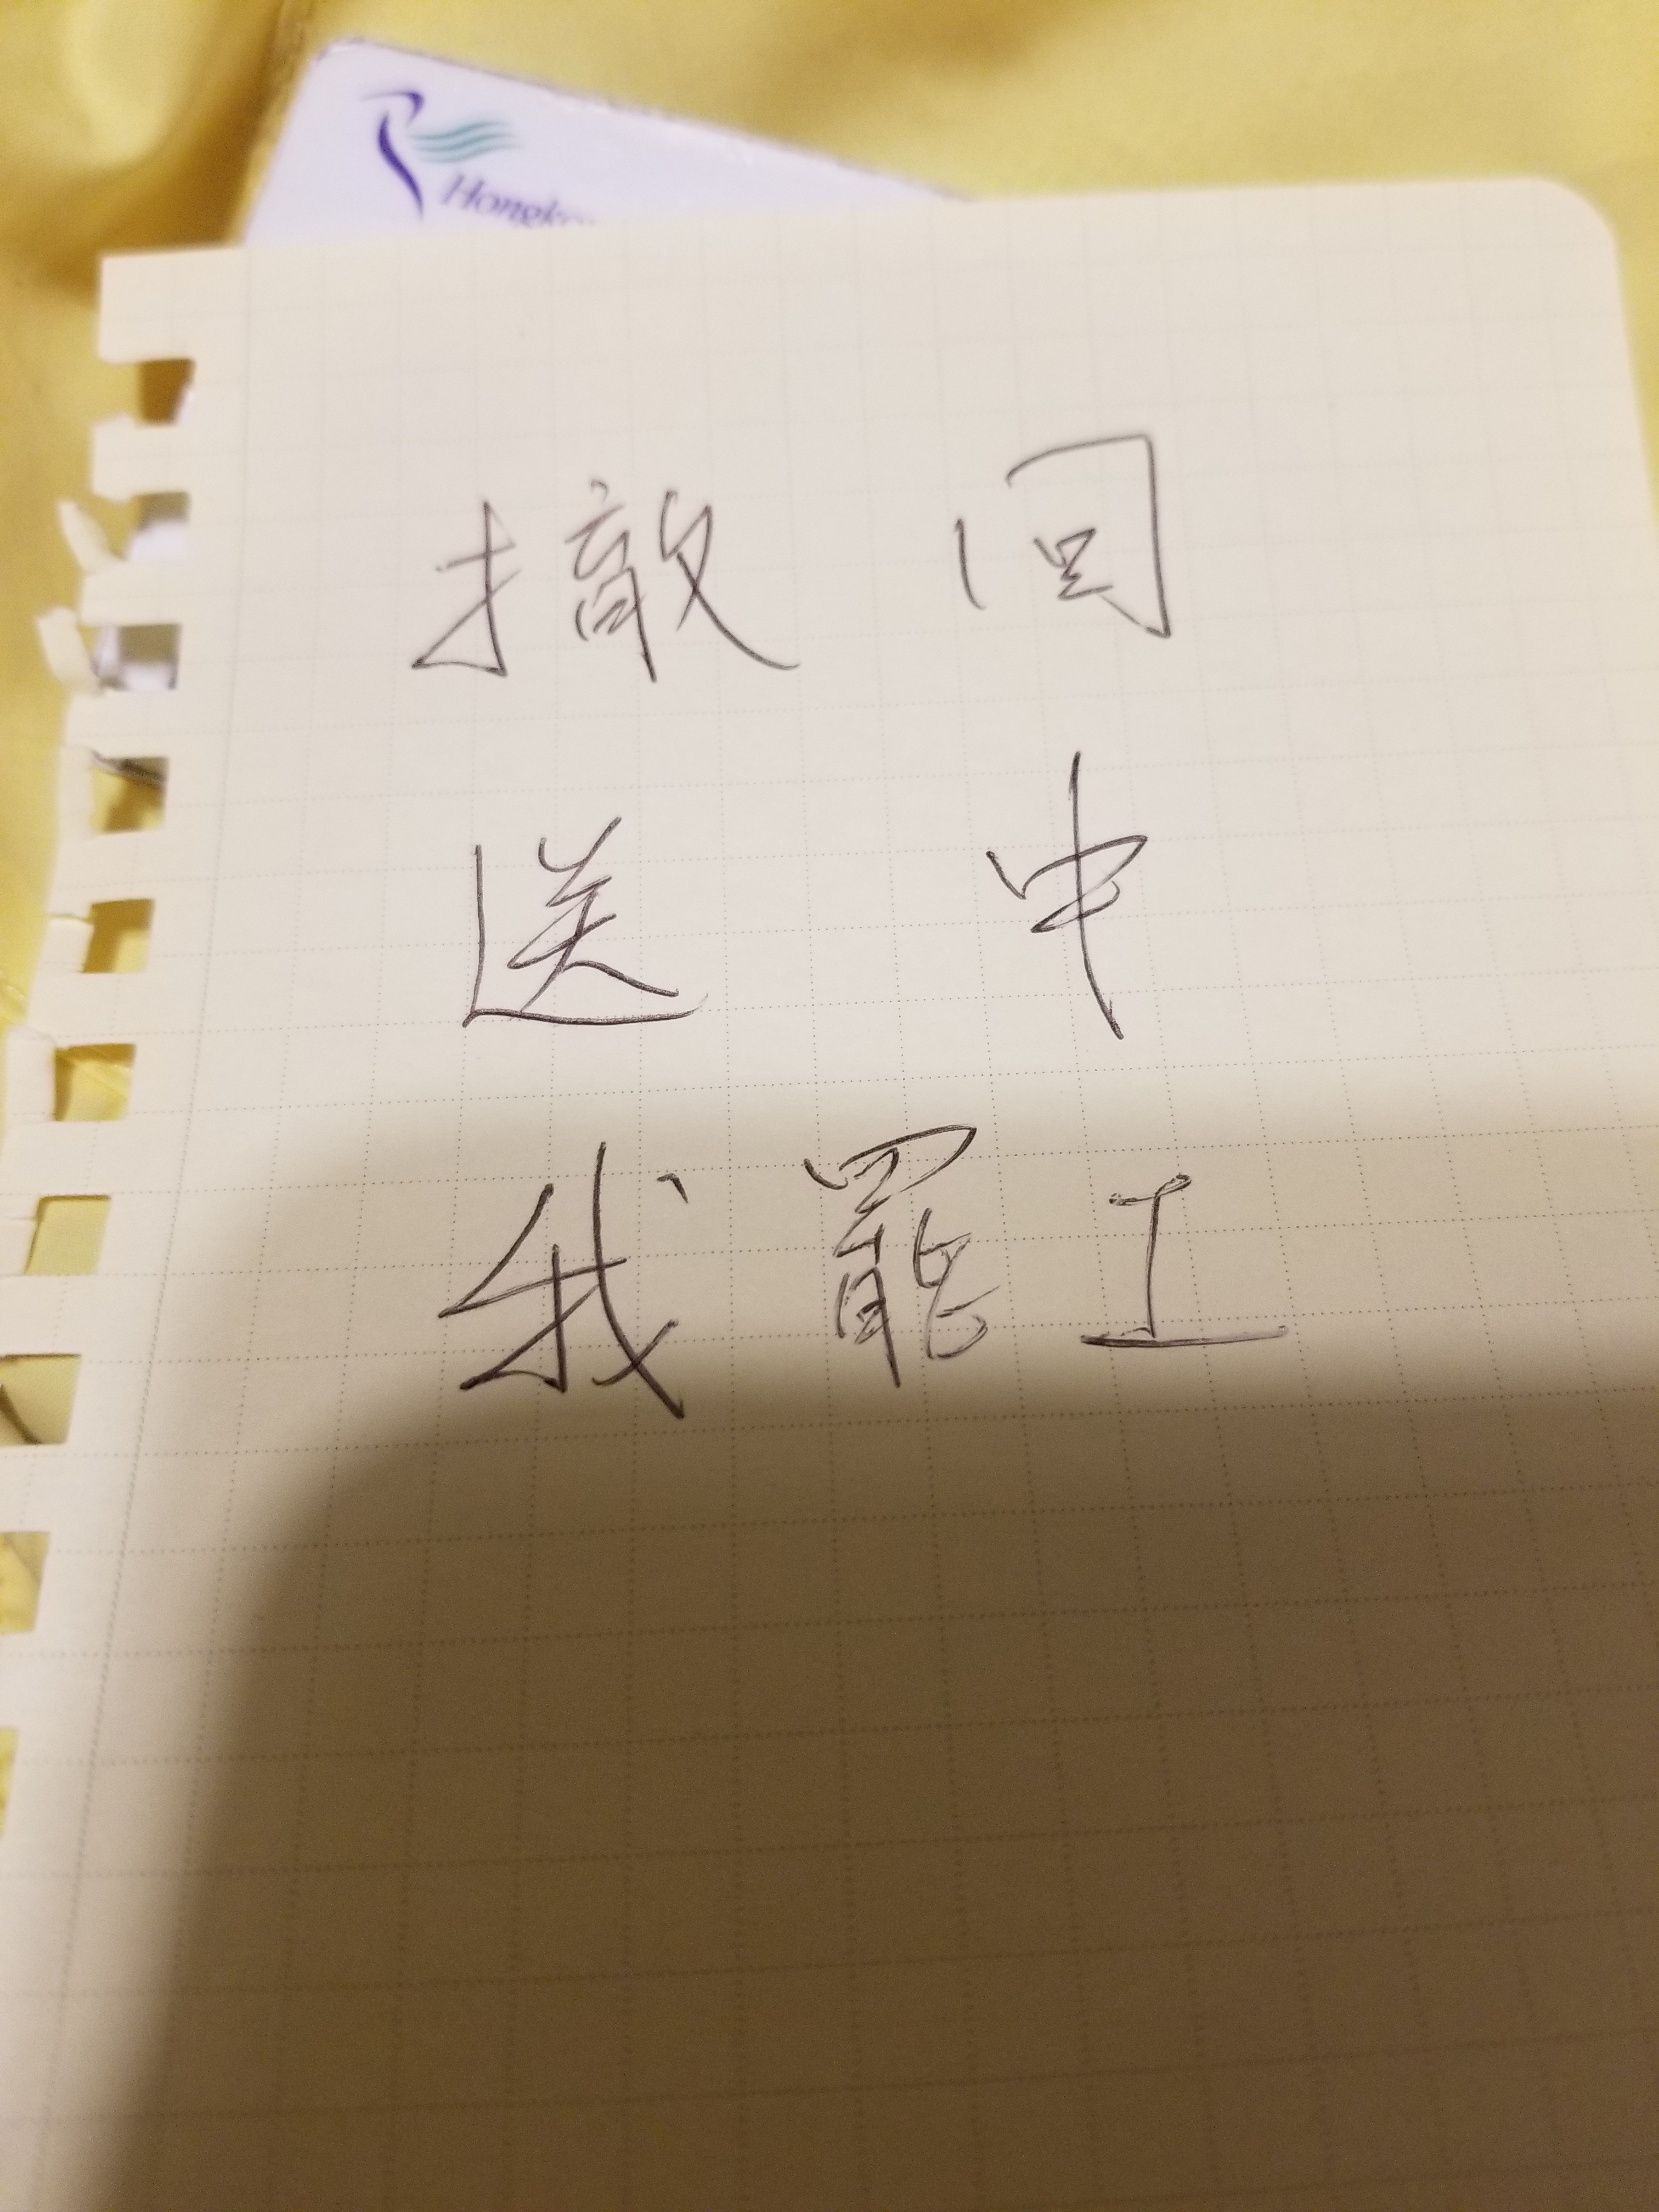 Hongk
撤回
送中
我罷工